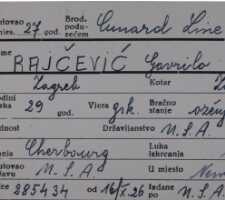 utovao nies. 27 god. Brod. podu- zećem Cunard Line
me RAJČEVIĆ Gavrilo
Zagreb Kotar
odini ska 29 god. Vjera grk. Bračno stanje oženj
dnost Državljanstvo U.S.A.
Cherbourg Luka iskrcanja
utovao žavu U.S.A. U mjesto New
ice 285434 od 16/X.26 Izdane po U.S.A.